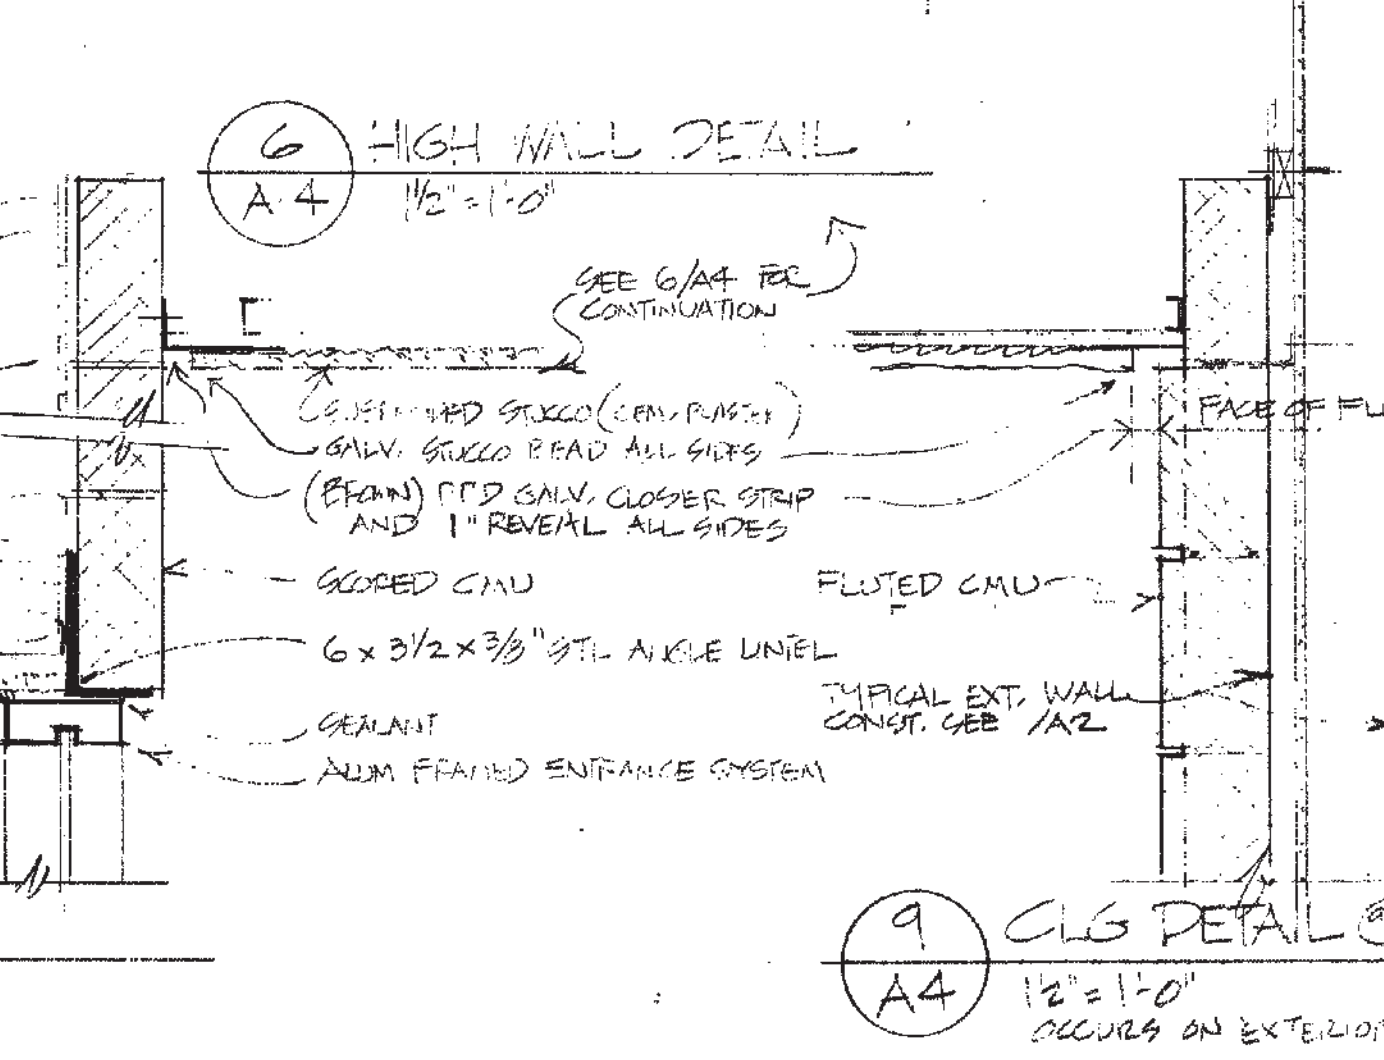 6
A.4
HIGH WALL DETAIL
1 1/2" = 1'-0"
SEE 6/A4 FOR
CONTINUATION
SUSPENDED STUCCO (CEM. PLASTER)
GALV. STUCCO BEAD ALL SIDES
(BROWN) PTD GALV. CLOSER STRIP
AND 1" REVEAL ALL SIDES
SCORED CMU
6 x 3 1/2 x 3/8" STL ANGLE LINTEL
SEALANT
ALUM FRAMED ENTRANCE SYSTEM
FACE OF FLU
FLUTED CMU
TYPICAL EXT. WALL
CONST. SEE /A2
9
A4
CLG DETAIL @
1 1/2" = 1'-0"
OCCURS ON EXTERIOR